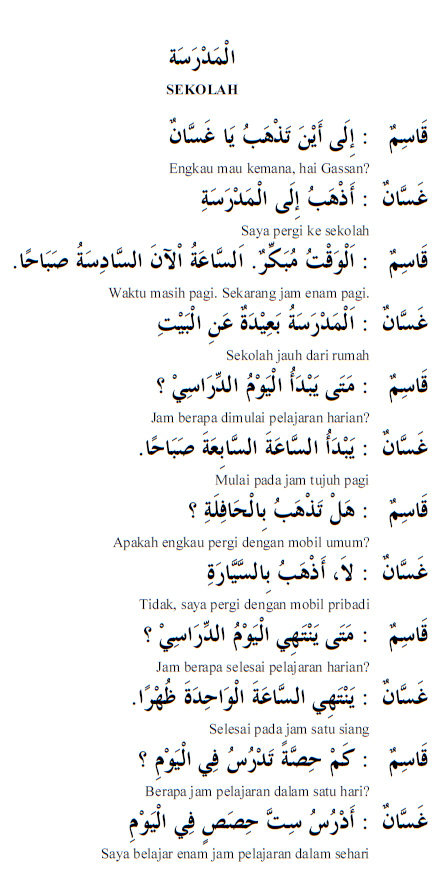 الْمَدْرَسَة
SEKOLAH
قَاسِمٌ : إِلَى أَيْنَ تَذْهَبُ يَا غَسَّانٌ
Engkau mau kemana, hai Gassan?
غَسَّانٌ : أَذْهَبُ إِلَى الْمَدْرَسَةِ
Saya pergi ke sekolah
قَاسِمٌ : اَلْوَقْتُ مُبَكِّرٌ. اَلسَّاعَةُ اْلآنَ السَّادِسَةُ صَبَاحًا.
Waktu masih pagi. Sekarang jam enam pagi.
غَسَّانٌ : اَلْمَدْرَسَةُ بَعِيْدَةٌ عَنِ الْبَيْتِ
Sekolah jauh dari rumah
قَاسِمٌ : مَتَى يَبْدَأُ الْيَوْمُ الدِّرَاسِيْ ؟
Jam berapa dimulai pelajaran harian?
غَسَّانٌ : يَبْدَأُ السَّاعَةَ السَّابِعَةَ صَبَاحًا.
Mulai pada jam tujuh pagi
قَاسِمٌ : هَلْ تَذْهَبُ بِالْحَافِلَةِ ؟
Apakah engkau pergi dengan mobil umum?
غَسَّانٌ : لاَ، أَذْهَبُ بِالسَّيَّارَةِ
Tidak, saya pergi dengan mobil pribadi
قَاسِمٌ : مَتَى يَنْتَهِي الْيَوْمُ الدِّرَاسِيْ ؟
Jam berapa selesai pelajaran harian?
غَسَّانٌ : يَنْتَهِي السَّاعَةَ الْوَاحِدَةَ ظُهْرًا.
Selesai pada jam satu siang
قَاسِمٌ : كَمْ حِصَّةً تَدْرُسُ فِي الْيَوْمِ ؟
Berapa jam pelajaran dalam satu hari?
غَسَّانٌ : أَدْرُسُ سِتَّ حِصَصٍ فِي الْيَوْمِ
Saya belajar enam jam pelajaran dalam sehari